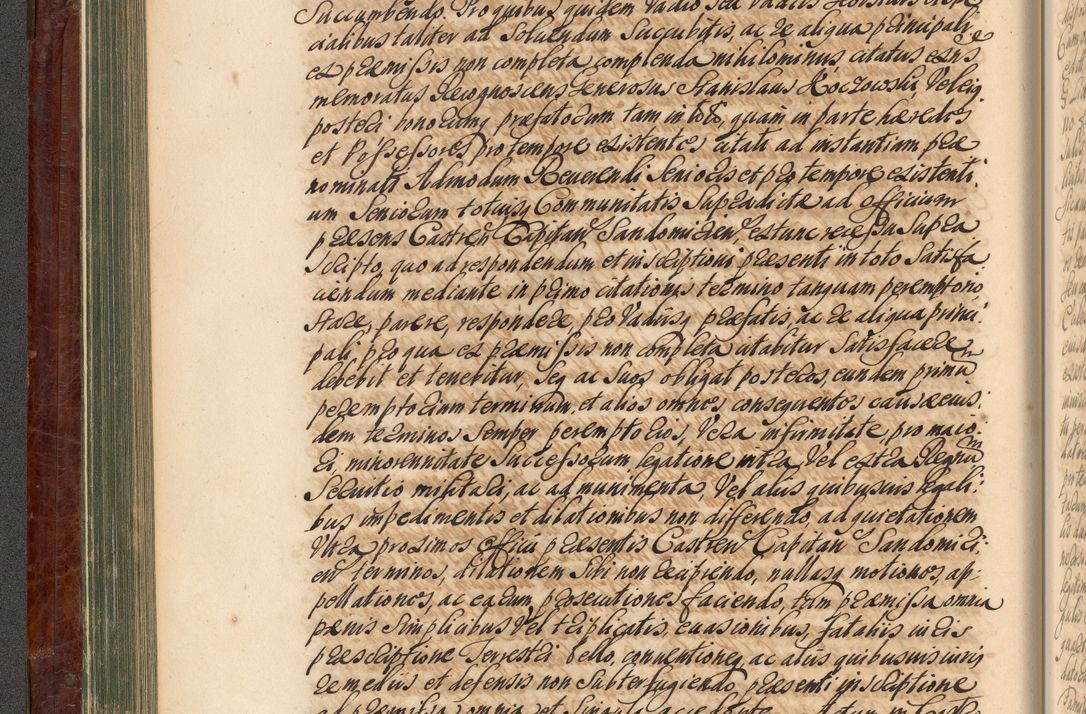 Succumbendo. Pro quibus quidem Vadio seu Vadiis
cialibus taliter ad Soluendum Succubitis, ac re aliqua principali
ex præmissis non completa complenda nihilominus citatus
memoratus Recognoscens Generosus Stanislaus Koczowski, Vel eius
posteri bonorumq præfatorum tam in toto, quam in parte hæredes
et Possessores pro tempore existentes citati ad instantiam præ
nominati Admodum Reuerendi Senioris et pro tempore existenti
um Seniorum totiusq Communitatis Supradictæ ad officium
præsens Castren Capitan Sandomirien, extunc recessu Supra
scripto, quo ad respondendum et inscriptioni præsenti in toto Satisfa
ciendum mediante in primo citationis termino tanquam peremptorio
Stare, parere, respondere, pro Vadiisq præfatis, ac re aliqua princi:
pali, pro qua ex præmissis non completa citabitur Satisfacere
debebit et tenebitur Seq ac Suos obligat posteros, eundem primum
peremptorium terminum, et alios omnes consequentes causæ eius:
dem terminos Semper peremptorios, Vera infirmitate, pro maio:
ri, minorennitate Successorum, legatione intra, Vel extra Regnum
Seruitio militari, ac ad munimenta, Vel aliis quibusuis legali:
bus impedimentis et dilationibus non differendo, ad quietationem
Vltra proximos officii præsentis Castren Capitan Sandomiri:
en terminos, dilationem Sibi non recipiendo, nullasq motiones, ap:
pellationes, ac earum prosecutiones faciendo, tam præmissa omnia
pænis Simplicibus Vel triplicatis, euasionibus, fataliis iuris
præscriptione Terrestri bello, conuentioneq ac aliis quibusuis iuris
remediis et defensis non Subterfugiendo præsenti inscriptione
ad præmissa omnia et Singula accedente